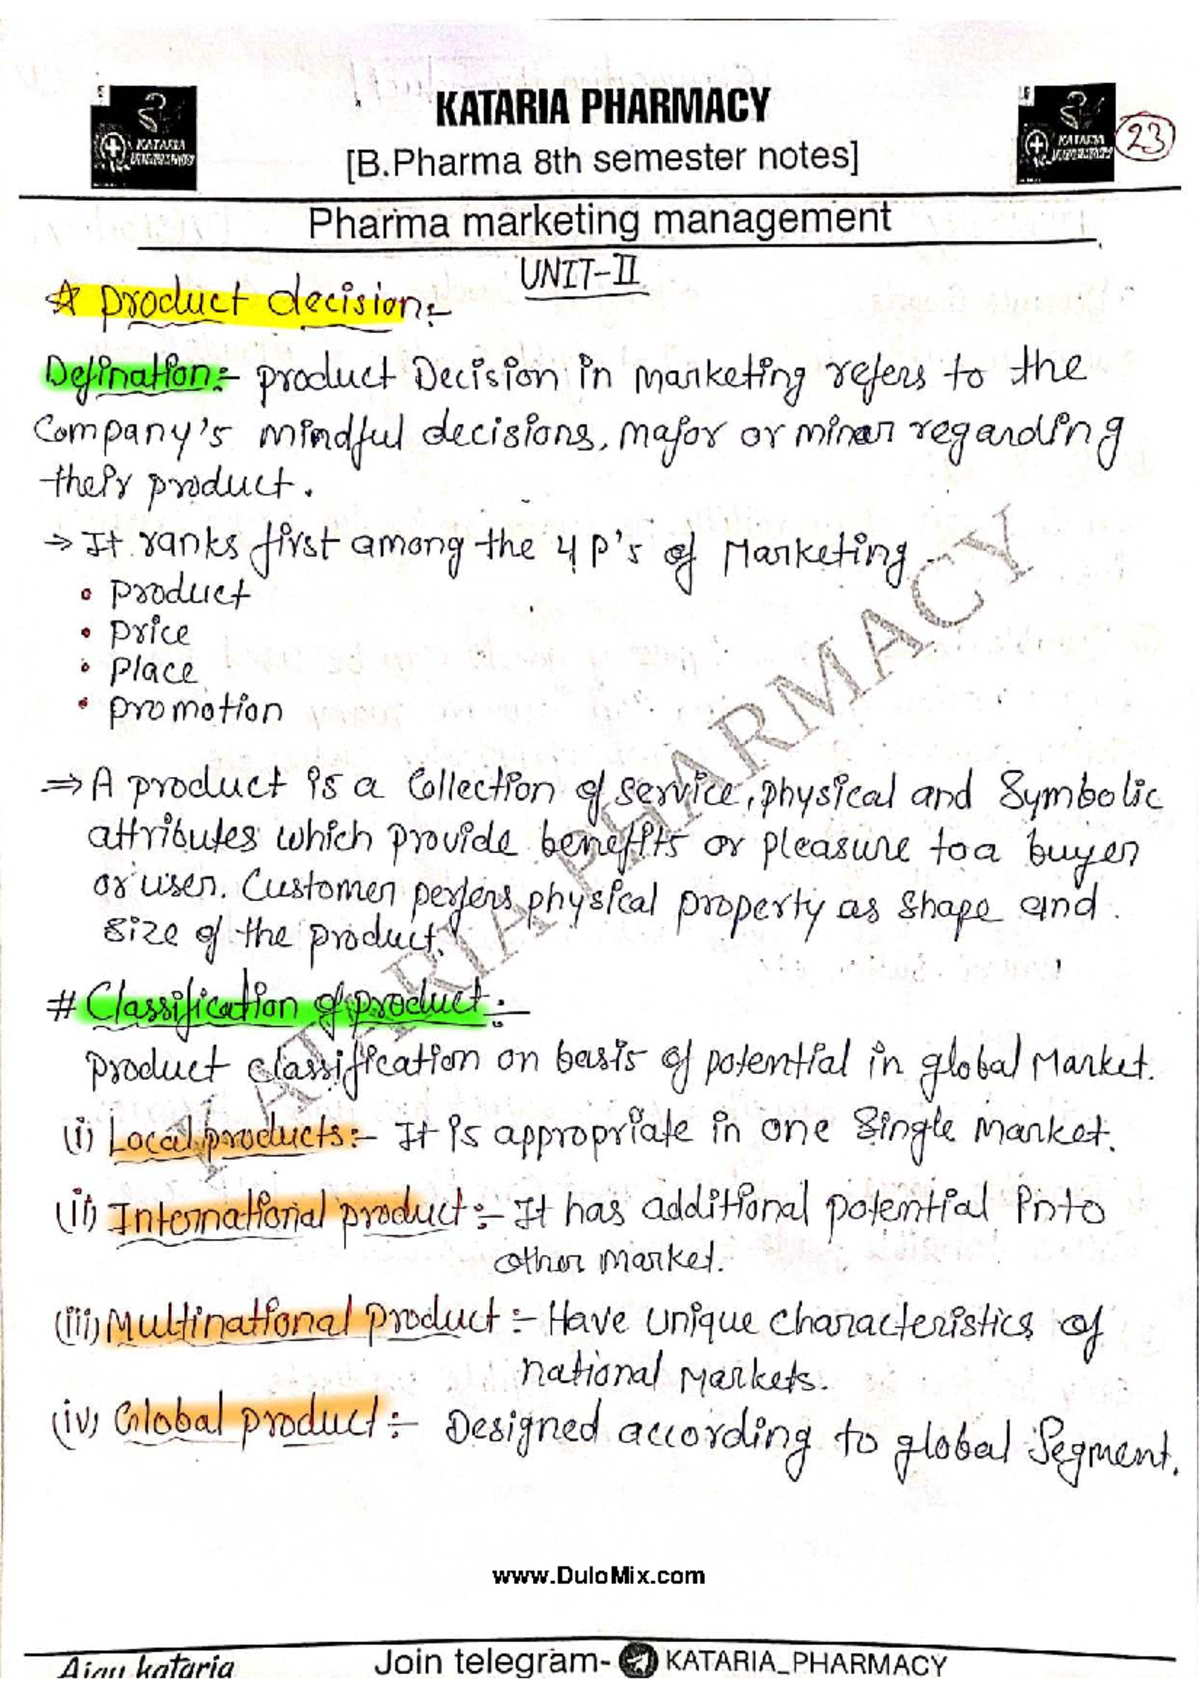 KATARIA PHARMACY
[B.Pharma 8th semester notes]
23
Pharma marketing management
UNIT-II
☆ product decision:-
Defination:- product Decision in marketing refers to the
Company's mindful decisions, major or minor regarding
their product.
→ It ranks first among the 4 p's of Marketing
• product
• price
• place
• promotion
⇒ A product is a Collection of service, physical and Symbolic
attributes which provide benefits or pleasure to a buyer
or user. Customer perfers physical property as shape and
size of the product.
# Classification of product:-
product classification on basis of potential in global Market.
(i) Local products:- It is appropriate in one Single market.
(ii) International product:- It has additional potential into
other market.
(iii) Multinational product:- Have unique characteristics of
national markets.
(iv) Global product:- Designed according to global Segment.
KATARIA PHARMACY
www.DuloMix.com
Ajay kataria
Join telegram- KATARIA_PHARMACY